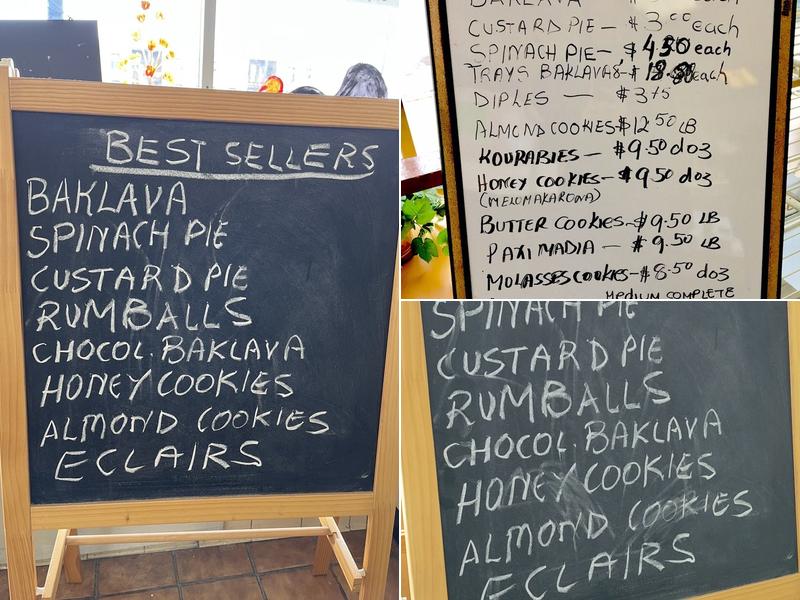 BEST SELLERS
BAKLAVA
SPINACH PIE
CUSTARD PIE
RUMBALLS
CHOCOL. BAKLAVA
HONEY COOKIES
ALMOND COOKIES
ECLAIRS
BAKLAVA - each
CUSTARD PIE - $3.00 each
SPINACH PIE - $4.50 each
TRAYS BAKLAVAS - $ each
DIPLES - $3.75
ALMOND COOKIES $12.50 LB
KOURABIES - $9.50 doz
HONEY COOKIES - $9.50 doz
(MELOMAKARONA)
BUTTER COOKIES - $9.50 LB
PAXIMADIA - $9.50 LB
MOLASSES COOKIES - $8.50 doz
MEDIUM COMPLETE
SPINACH PIE
CUSTARD PIE
RUMBALLS
CHOCOL. BAKLAVA
HONEY COOKIES
ALMOND COOKIES
ECLAIRS